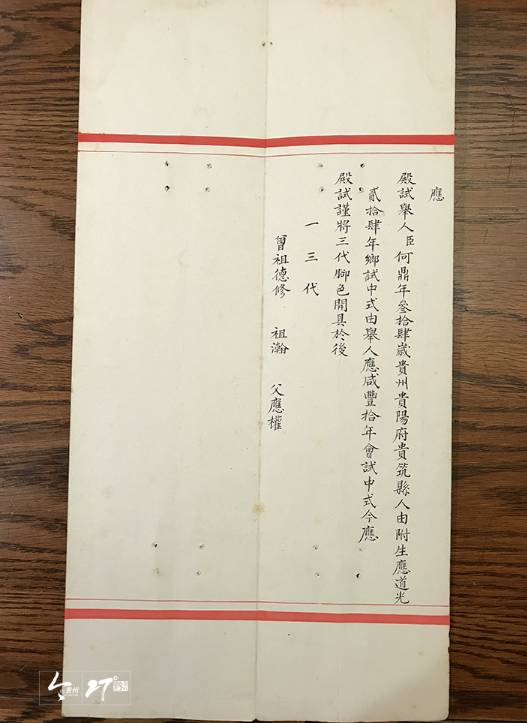 應
殿試舉人臣何鼎年叁拾肆歲貴州貴陽府貴筑縣人由附生應道光
貳拾肆年鄉試中式由舉人應咸豐拾年會試中式今應
殿試謹將三代腳色開具於後
一三代
曾祖德修 祖瀚 父應權
27°